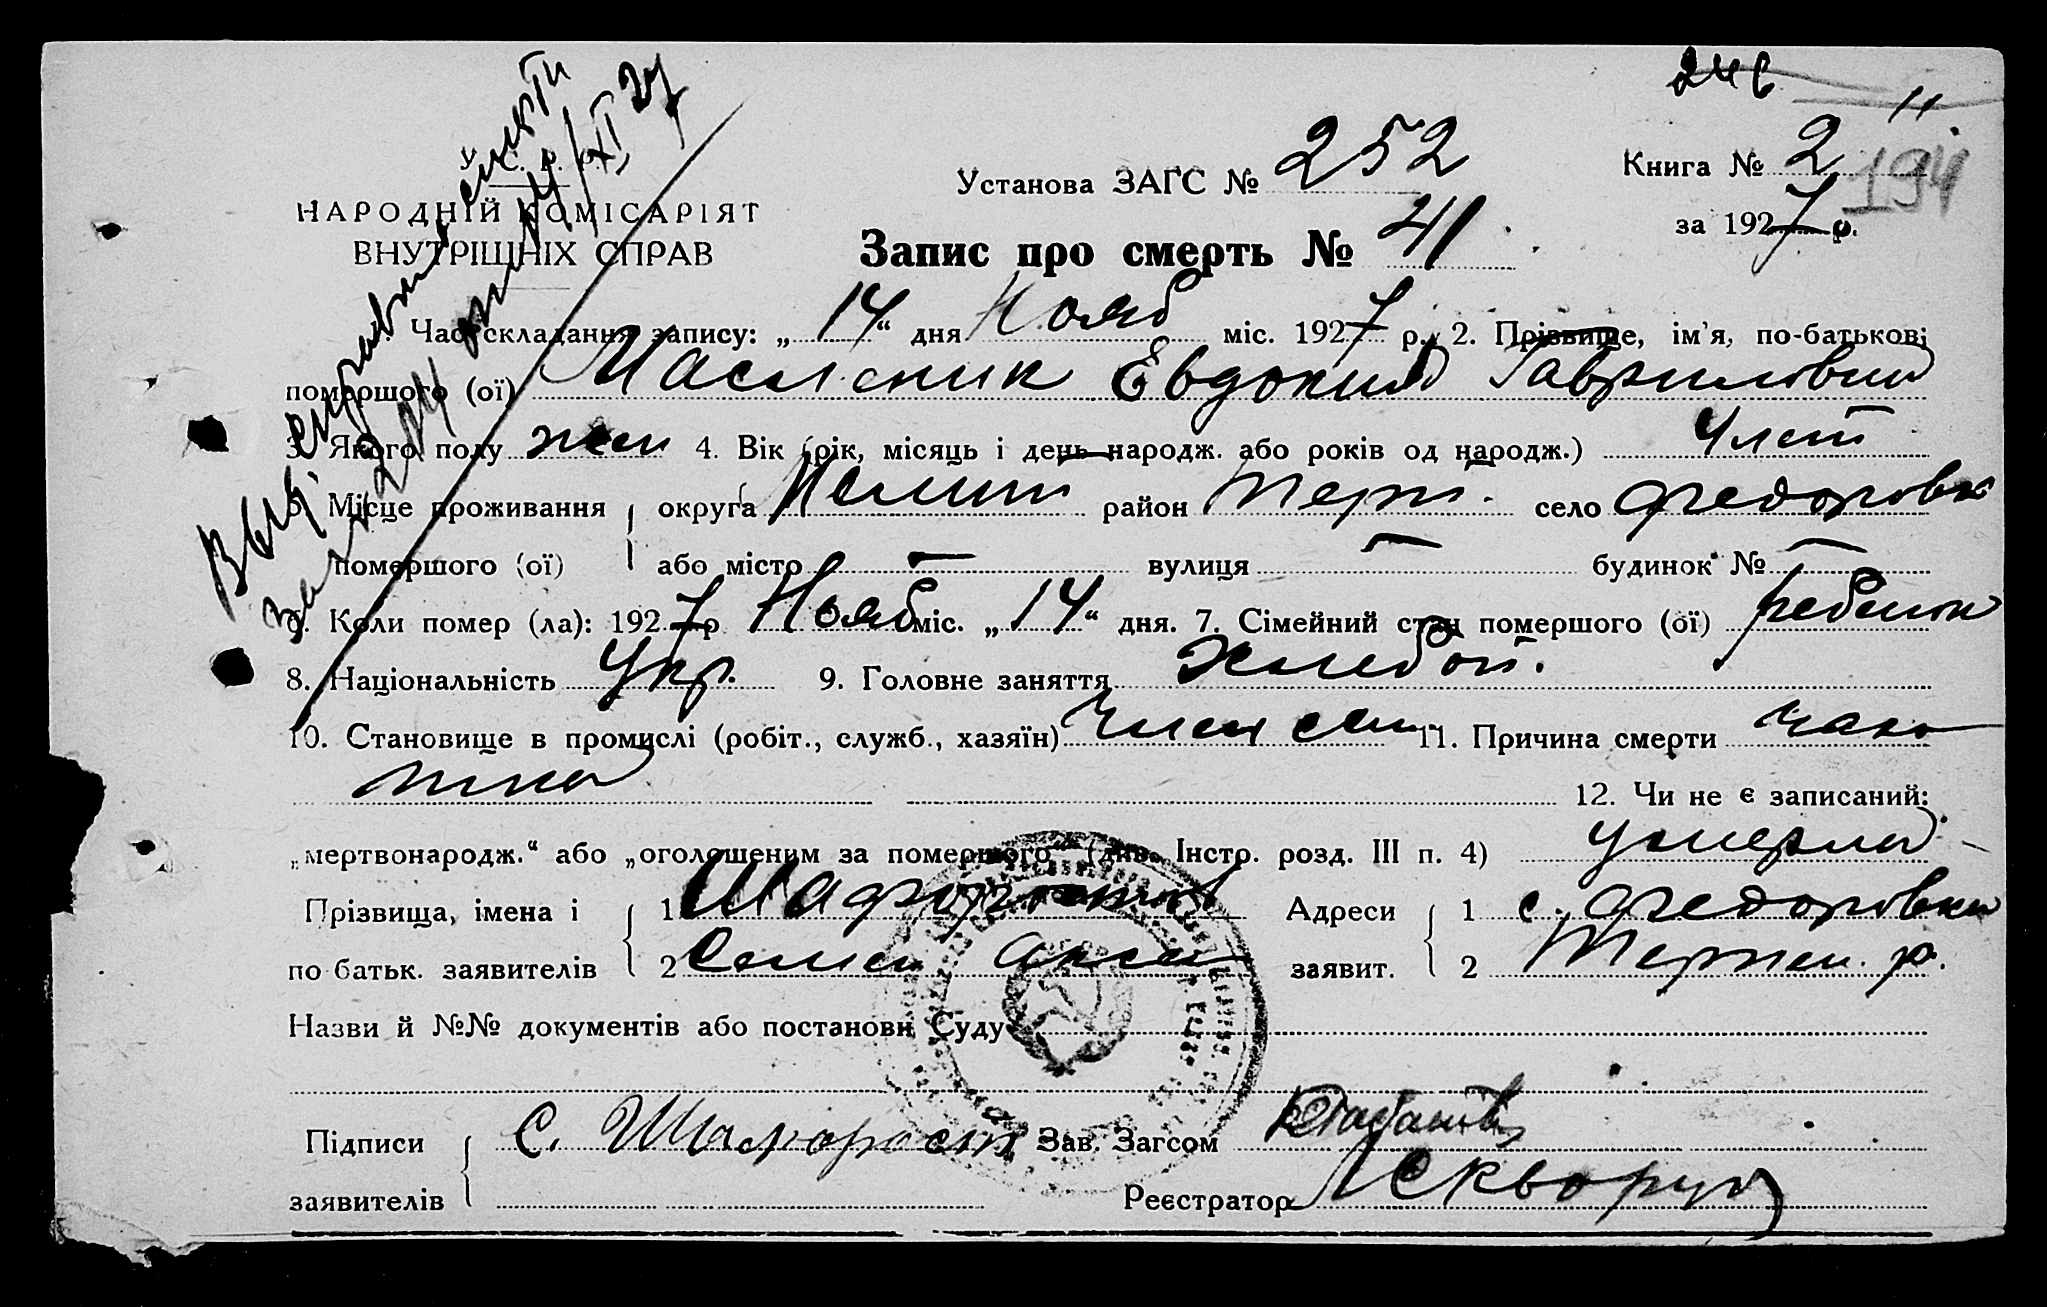 246
11
194
У. С. Р. Р.
НАРОДНІЙ КОМІСАРІЯТ
ВНУТРІШНІХ СПРАВ
Установа ЗАГС № 252
Книга № 2
за 1927 р.
Запис про смерть № 41
Час складання запису: „14“ дня Нояб міс. 1927 р. 2. Прізвище, ім'я, по-батькові
помершого (ої) Масленик Евдокия Гавриловна
3. Якого полу жен 4. Вік (рік, місяць і день народж. або років од народж.) 4 лет
5. Місце проживання округа Мелит район Терп. село Федоровка
помершого (ої) або місто — вулиця — будинок № —
6. Коли помер (ла): 1927 р Нояб міс. „14“ дня. 7. Сімейний стан помершого (ої) ребенок
8. Національність Укр. 9. Головне заняття Хлебоп.
10. Становище в промислі (робіт., служб., хазяїн) Член сем 11. Причина смерти
12. Чи не є записаний:
„мертвонародж.“ або „оголошеним за помершого“ (див. Інстр. розд. III п. 4) умерла
Прізвища, імена і 1 Адреси 1 с. Федоровка
по батьк. заявителів 2 заявит. 2 Терпен. р.
Назви й №№ документів або постанови Суду
Підписи С. Зав. Загсом
заявителів Реєстратор